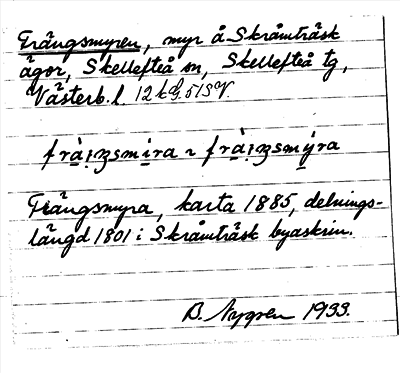 Frängsmyren, myr å Skråmträsk
ägor, Skellefteå sn, Skellefteå tg,
Västerb. l. 12 k G. 513 V.
fràŋsmìra ~ fràŋsmýra
Frängsmyra, karta 1885, delnings-
längd 1801 i Skråmträsk byaskrin.
B. Nygren 1933.